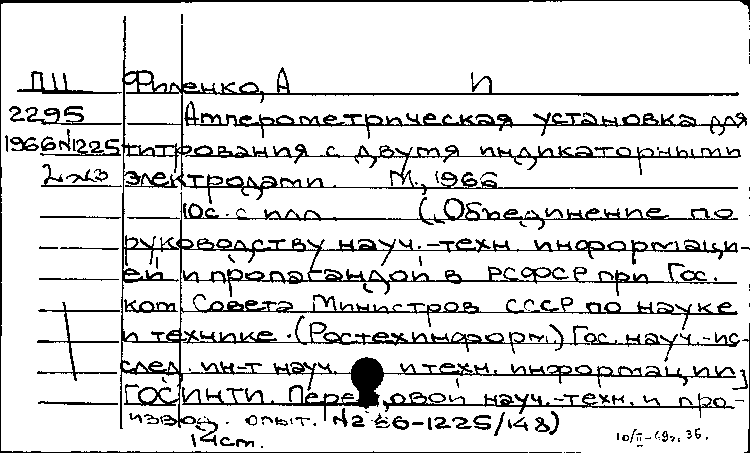 ПII Филенко, А И
2295 Амперометрическая установка для
1966N1225 титрования с двумя индикаторными
2 экз электродами. М., 1966
10с. с илл. („Объединение по
руководству науч.-техн. информаци-
ей и пропагандой в РСФСР при Гос.
ком. Совета Министров СССР по науке
и технике. (Ростехинформ.) Гос. науч.-ис-
след. ин-т науч. и техн. информации
ГОСИНТИ. Передовой науч.-техн. и про-
извод. опыт. №2 66-1225/148)
14cm. 10/II-69г. 36.